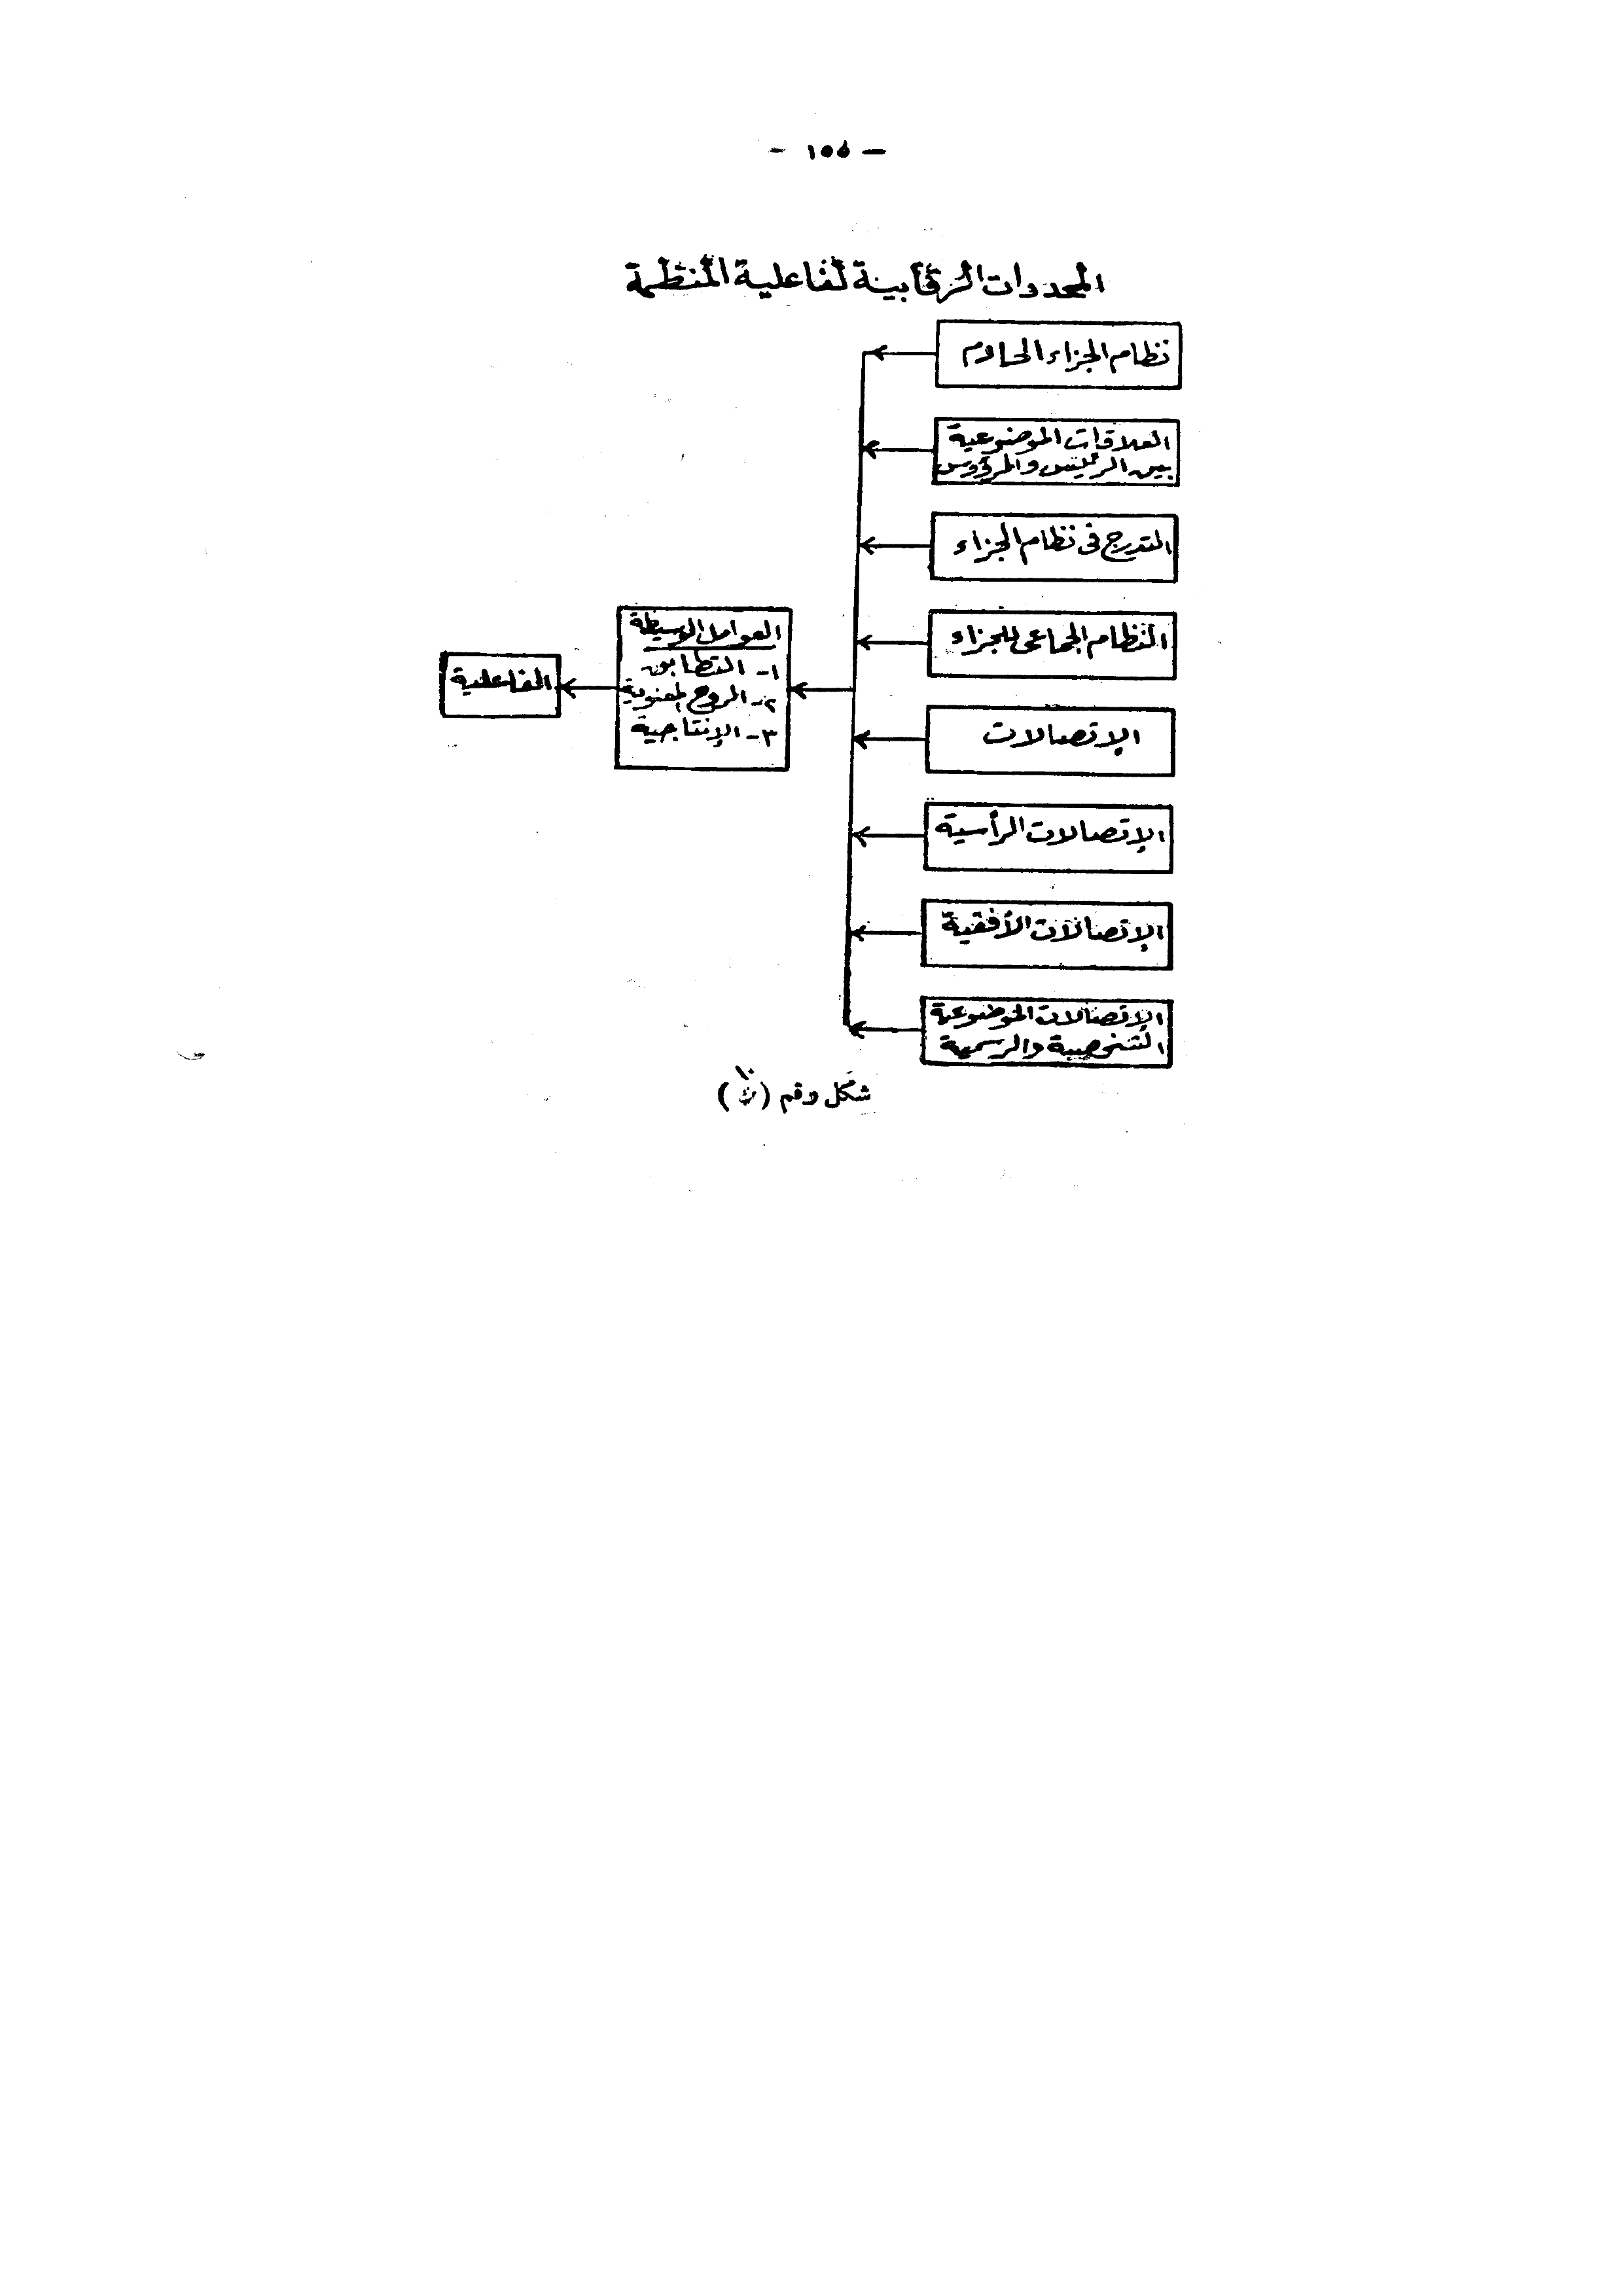 - ١٥٥ -
المحددات الرقابية لفاعلية المنظمة
نظام الجزاء الصارم
العلاقات الموضوعية
بين الرئيس والمرؤوس
التدرج فى نظام الجزاء
النظام الجماعى للجزاء
الإتصالات
الإتصالات الرأسية
الإتصالات الأفقية
الإتصالات الموضوعية
الشخصية والرسمية
العوامل الوسيطة
١- التطابق
٢- الروح المعنوية
٣- الإنتاجية
الفاعلية
شكل رقم (١٠)